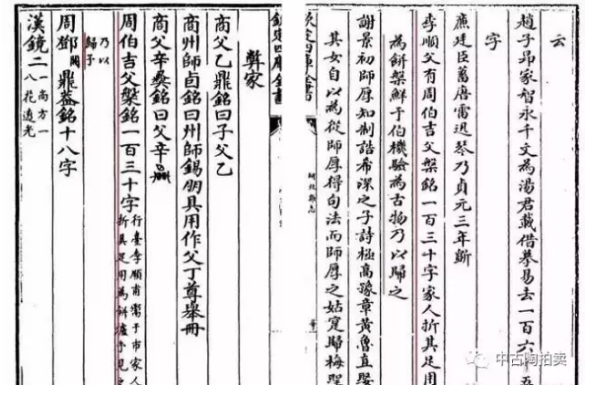 云
趙子昂家智永千文為湯君載借摹易去一百六十五
字
廉廷臣舊唐雷迅琴乃貞元三年斵
李順父有周伯吉父槃銘一百三十字家人折其足用
為餅槃鮮于伯機驗為古物乃以歸之
謝景初師厚知制誥希深之子詩極高豫章黃魯直娶
其女自以為從師厚得句法而師厚之姑寔歸梅聖
欽定四庫全書
研北雜志
欽定四庫全書
彛家
商父乙鼎銘曰子父乙
商州師卣銘曰州師錫朋具用作父丁尊舉冊
商父辛彛銘曰父辛
周伯吉父槃銘一百三十字行臺李順甫鬻于市家人
折其足用為餅爐予見之
乃以
歸予
周鄧闕鼎葢銘十八字
漢鏡二一高方一
八花透光
中古陶拍卖